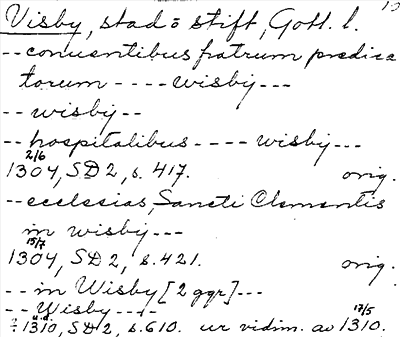 Visby, stad = stift, Gotl. l.
-- conuentibus fratrum predica
torum ---- wisby ---
-- wisby --
-- hospitalibus ---- wisby ---
2/6
1304, SD 2, s. 417. orig.
-- ecclesias, Sancti Clementis
in wisby ---
15/7
1304, SD 2, s. 421. orig.
-- in Wisby [2 ggr] ---
-- Wisby ----
u.d. 17/5
1310, SD 2, s. 610. ur vidim. av 1310.